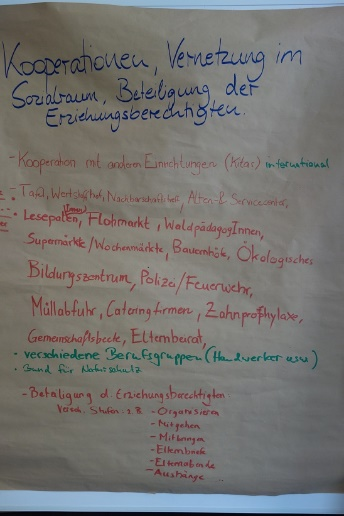 Kooperationen, Vernetzung im
Sozialraum, Beteiligung der
Erziehungsberechtigten.
- Kooperation mit anderen Einrichtungen (Kitas) international
- Tafel, Wertstoffhof, Nachbarschaftstreff, Alten- & Servicecenter,
• Lesepaten, Flohmarkt, WaldpädagogInnen,
Supermärkte/Wochenmärkte, Bauernhöfe, Ökologisches
Bildungszentrum, Polizei/Feuerwehr,
Müllabfuhr, Cateringfirmen, Zahnprophylaxe,
Gemeinschaftsbeete, Elternbeirat,
• verschiedene Berufsgruppen (Handwerker usw)
• Bund für Naturschutz
- Beteiligung d. Erziehungsberechtigten
Versch. Stufen z.B. - Organisieren
- Mitgehen
- Mitbringen
- Elternbriefe
- Elternabende
- Aushänge